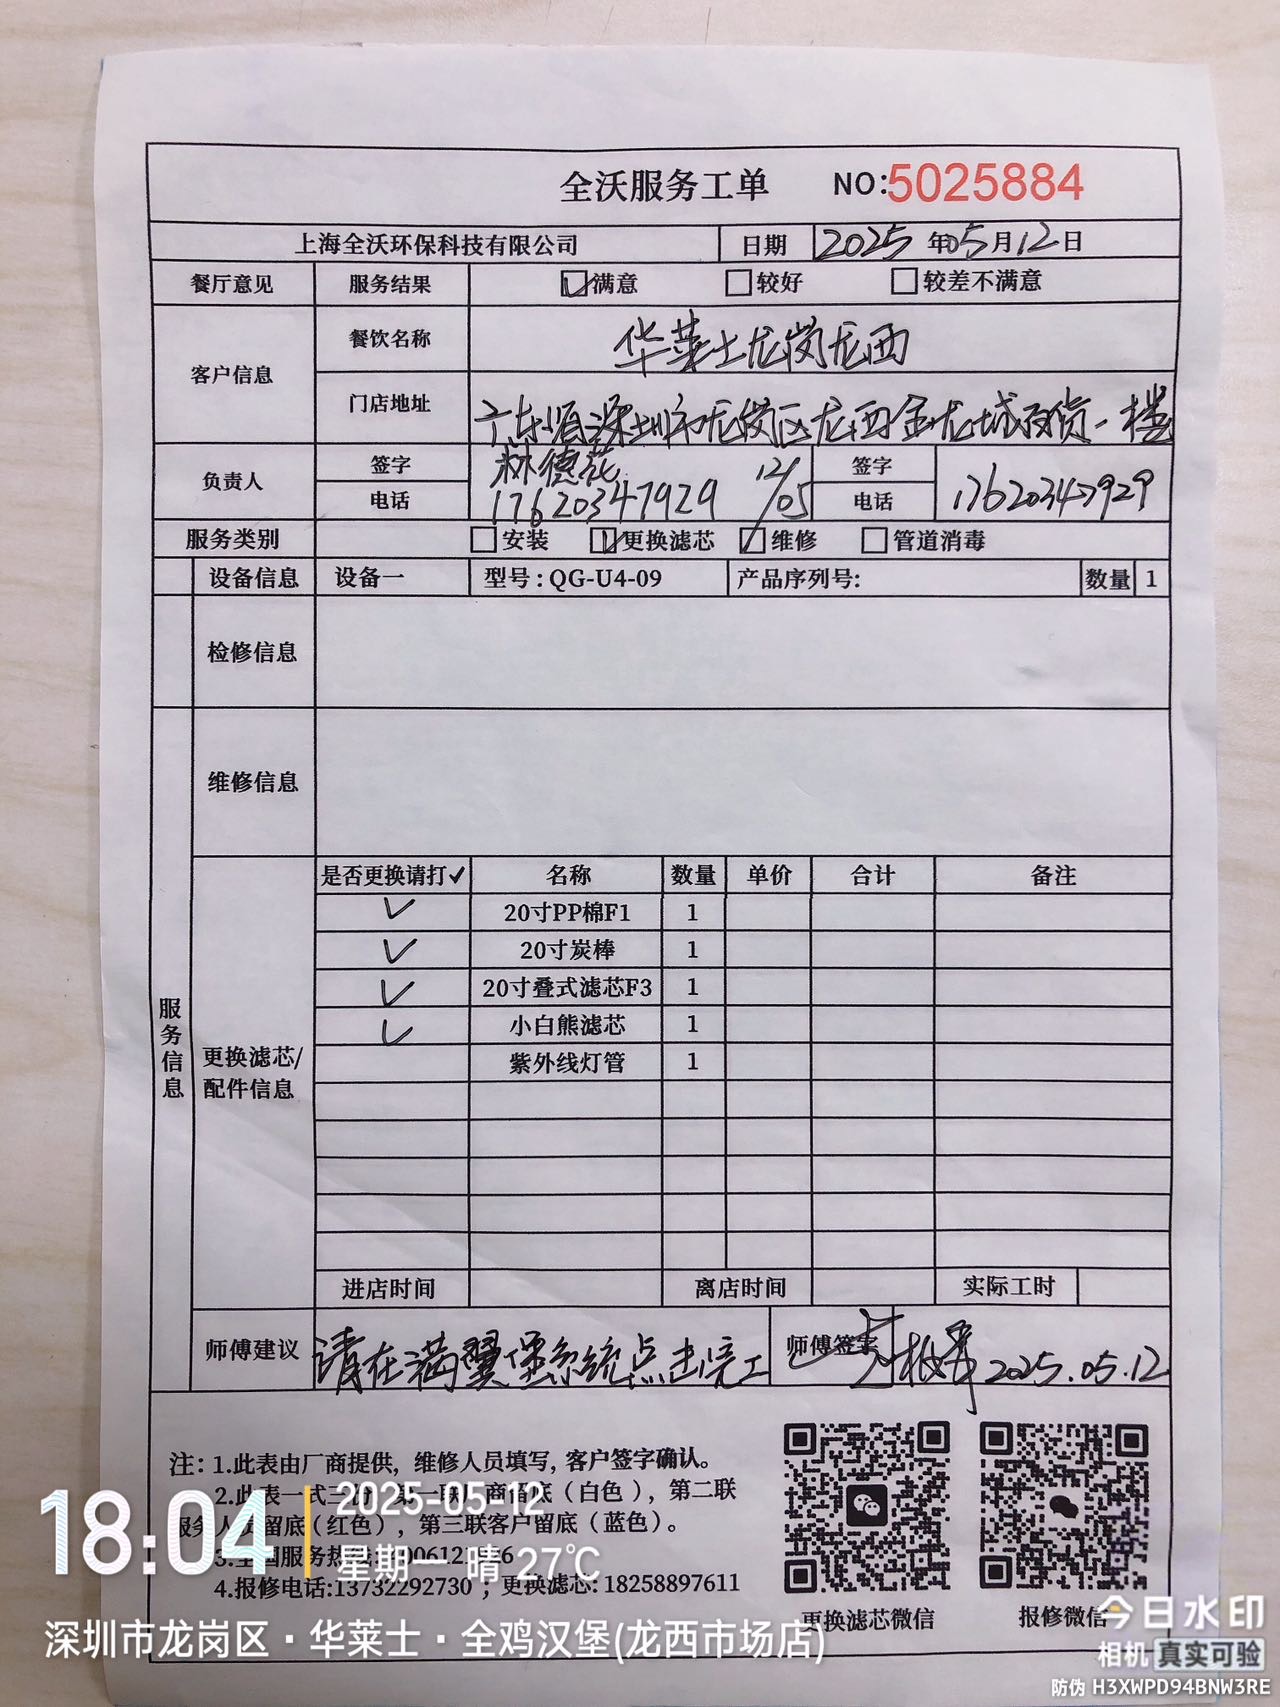 全沃服务工单 NO:5025884
上海全沃环保科技有限公司 日期 2025年05月12日
餐厅意见 服务结果 满意 较好 较差不满意
客户信息 餐饮名称 华莱士龙岗龙西
门店地址 广东省深圳市龙岗区龙西金龙城百货一楼
负责人 签字 林德花 12/05 签字
电话 17620347929 电话 17620347929
服务类别 安装 更换滤芯 维修 管道消毒
设备信息 设备一 型号:QG-U4-09 产品序列号: 数量 1
检修信息
维修信息
服务信息
更换滤芯/
配件信息
是否更换请打✓ 名称 数量 单价 合计 备注
✓ 20寸PP棉F1 1
✓ 20寸炭棒 1
✓ 20寸叠式滤芯F3 1
✓ 小白熊滤芯 1
紫外线灯管 1
进店时间 离店时间 实际工时
师傅建议 请在满翼堡系统点击完工 师傅签字 2025.05.12
注:1.此表由厂商提供,维修人员填写,客户签字确认。
2.此表一式三 第一联厂商留底(白色),第二联
服务人员留底(红色),第三联客户留底(蓝色)。
3.全国服务热线:
4.报修电话:13732292730;更换滤芯:18258897611
更换滤芯微信 报修微信
18:04
2025-05-12
星期一 晴 27℃
深圳市龙岗区·华莱士·全鸡汉堡(龙西市场店)
今日水印
相机 真实可验
防伪 H3XWPD94BNW3RE